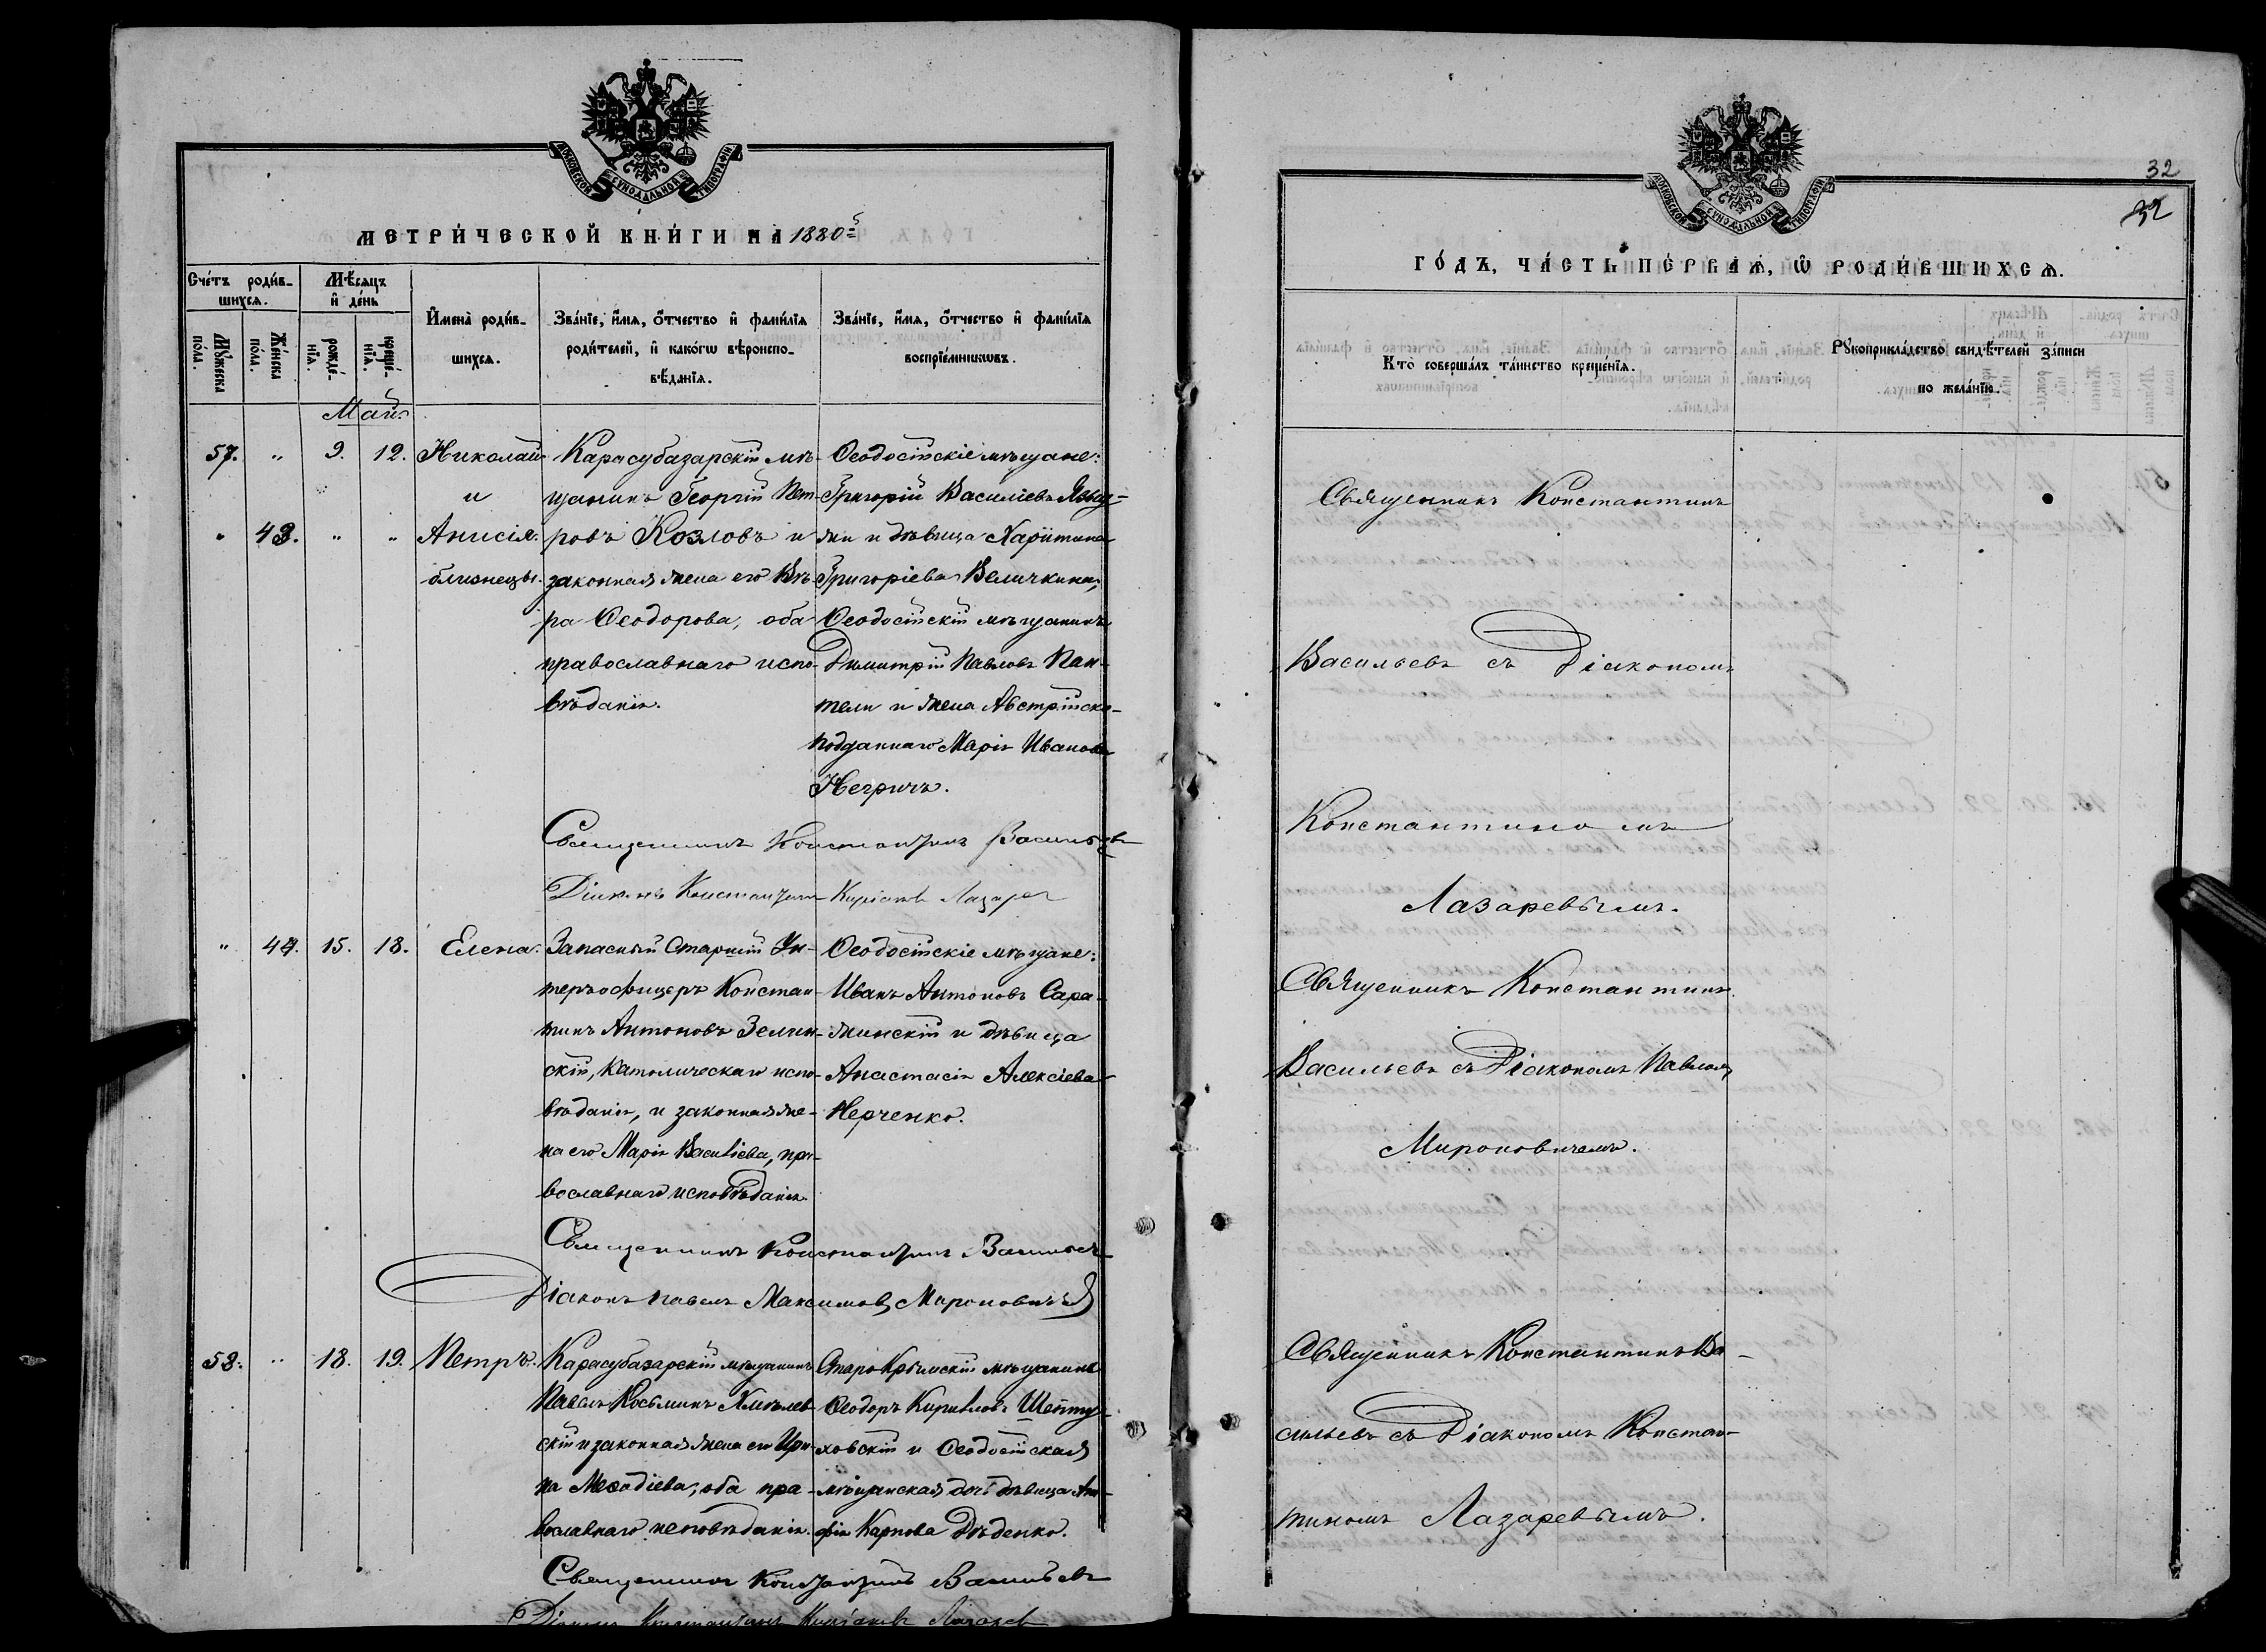 МОСКОВСКОЙ СѴНОДАЛЬНОЙ ТИПОГРАФІИ
МЕТРИ́ЧЕСКОЙ КНИ́ГИ НА 1880й
Сче́тъ роди́в-
шихсѧ.
Мѣ́сѧцъ
и҆ де́нь
Мꙋ́жеска
по́ла.
Же́нска
по́ла.
рожде́-
нїѧ.
креще́-
нїѧ.
И҆мена̀ роди́в-
шихсѧ.
Зва́нїе, и҆́мѧ, ѻ҆́тчество и҆ фами́лїѧ
роди́телей, и҆ како́гѡ вѣроиспо-
вѣ́данїѧ.
Зва́нїе, и҆́мѧ, ѻ҆́тчество и҆ фами́лїѧ
воспрїе́мникѡвъ.
Май.
57. " 9. 12. Николай
и
" 43. " " Анисія.
близнецы.
Карасубазарскій мѣ-
щанинъ Георгій Пет-
ровъ Козловъ и
законная жена его Вѣ-
ра Ѳеодорова, оба
православнаго испо-
вѣданія.
Ѳеодосійскіе мѣщане:
Григорій Василіевъ
и дѣвица Харитина
Григоріева Величкина,
Ѳеодосійскій мѣщанинъ
Димитрій Павловъ Пан-
тели и жена Австрійско-
подданнаго Марія Иванова
Негричъ.
Священникъ Константинъ Васильевъ
Діаконъ Константинъ Киріаковъ Лазарев
" 44. 15. 18. Елена.
Запасный Старшій Ун-
теръ-офицеръ Констан-
тинъ Антоновъ Зелин-
скій, католическаго испо-
вѣданія, и законная же-
на его Марія Василіева, пра-
вославнаго исповѣданія.
Ѳеодосійскіе мѣщане:
Иванъ Антоновъ Сара-
жинскій и дѣвица
Анастасія Алексіева
Нерченко.
Священникъ Константинъ Васильевъ
Діаконъ Павелъ Максимовъ Мироновичъ
58. " 18. 19. Петръ.
Карасубазарскій мѣщанинъ
Павелъ Косьминъ Хмѣлев-
скій и законная жена его Ири-
на Меѳодіева, оба пра-
вославнаго исповѣданія.
Старокрымскій мѣщанинъ
Ѳеодоръ Кирилловъ Шепту-
ховскій и Ѳеодосійская
мѣщанская дочь дѣвица Ага-
фія Карпова Дѣденко.
Священникъ Константинъ Васильевъ
Діаконъ Константинъ Киріаковъ Лазарев
32
32
МОСКОВСКОЙ СѴНОДАЛЬНОЙ ТИПОГРАФІИ
ГО́ДЪ, ЧА́СТЬ ПЕ́РВАѦ, Ѡ҆ РОДИ́ВШИХСѦ.
Кто̀ соверша́лъ та́инство креще́нїѧ.
Рꙋкоприкла́дство свидѣ́телей за́писи
по жела́нїю.
Священникъ Константинъ
Васильевъ съ Діакономъ
Константиномъ
Лазаревымъ.
Священникъ Константинъ
Васильевъ съ Діакономъ Павломъ
Мироновичемъ.
Священникъ Константинъ Ва-
сильевъ съ Діакономъ Констан-
тиномъ Лазаревымъ.